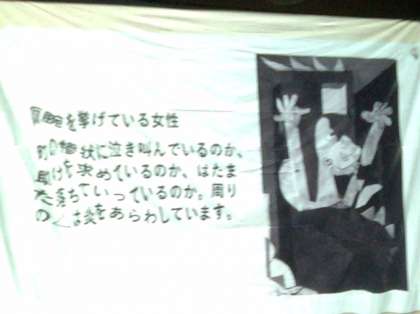 を挙げている女性
状に泣き叫んでいるのか、
を求めているのか、はたま
た落ちていっているのか。周り
の は炎をあらわしています。